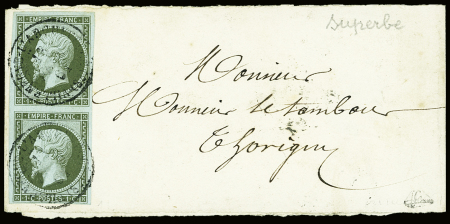 Superbe
EMPIRE FRANC
1 C. POSTES 1 C.
EMPIRE FRANC
1 C. POSTES 1 C.
Monsieur
Monsieur le tambour
Thorigny